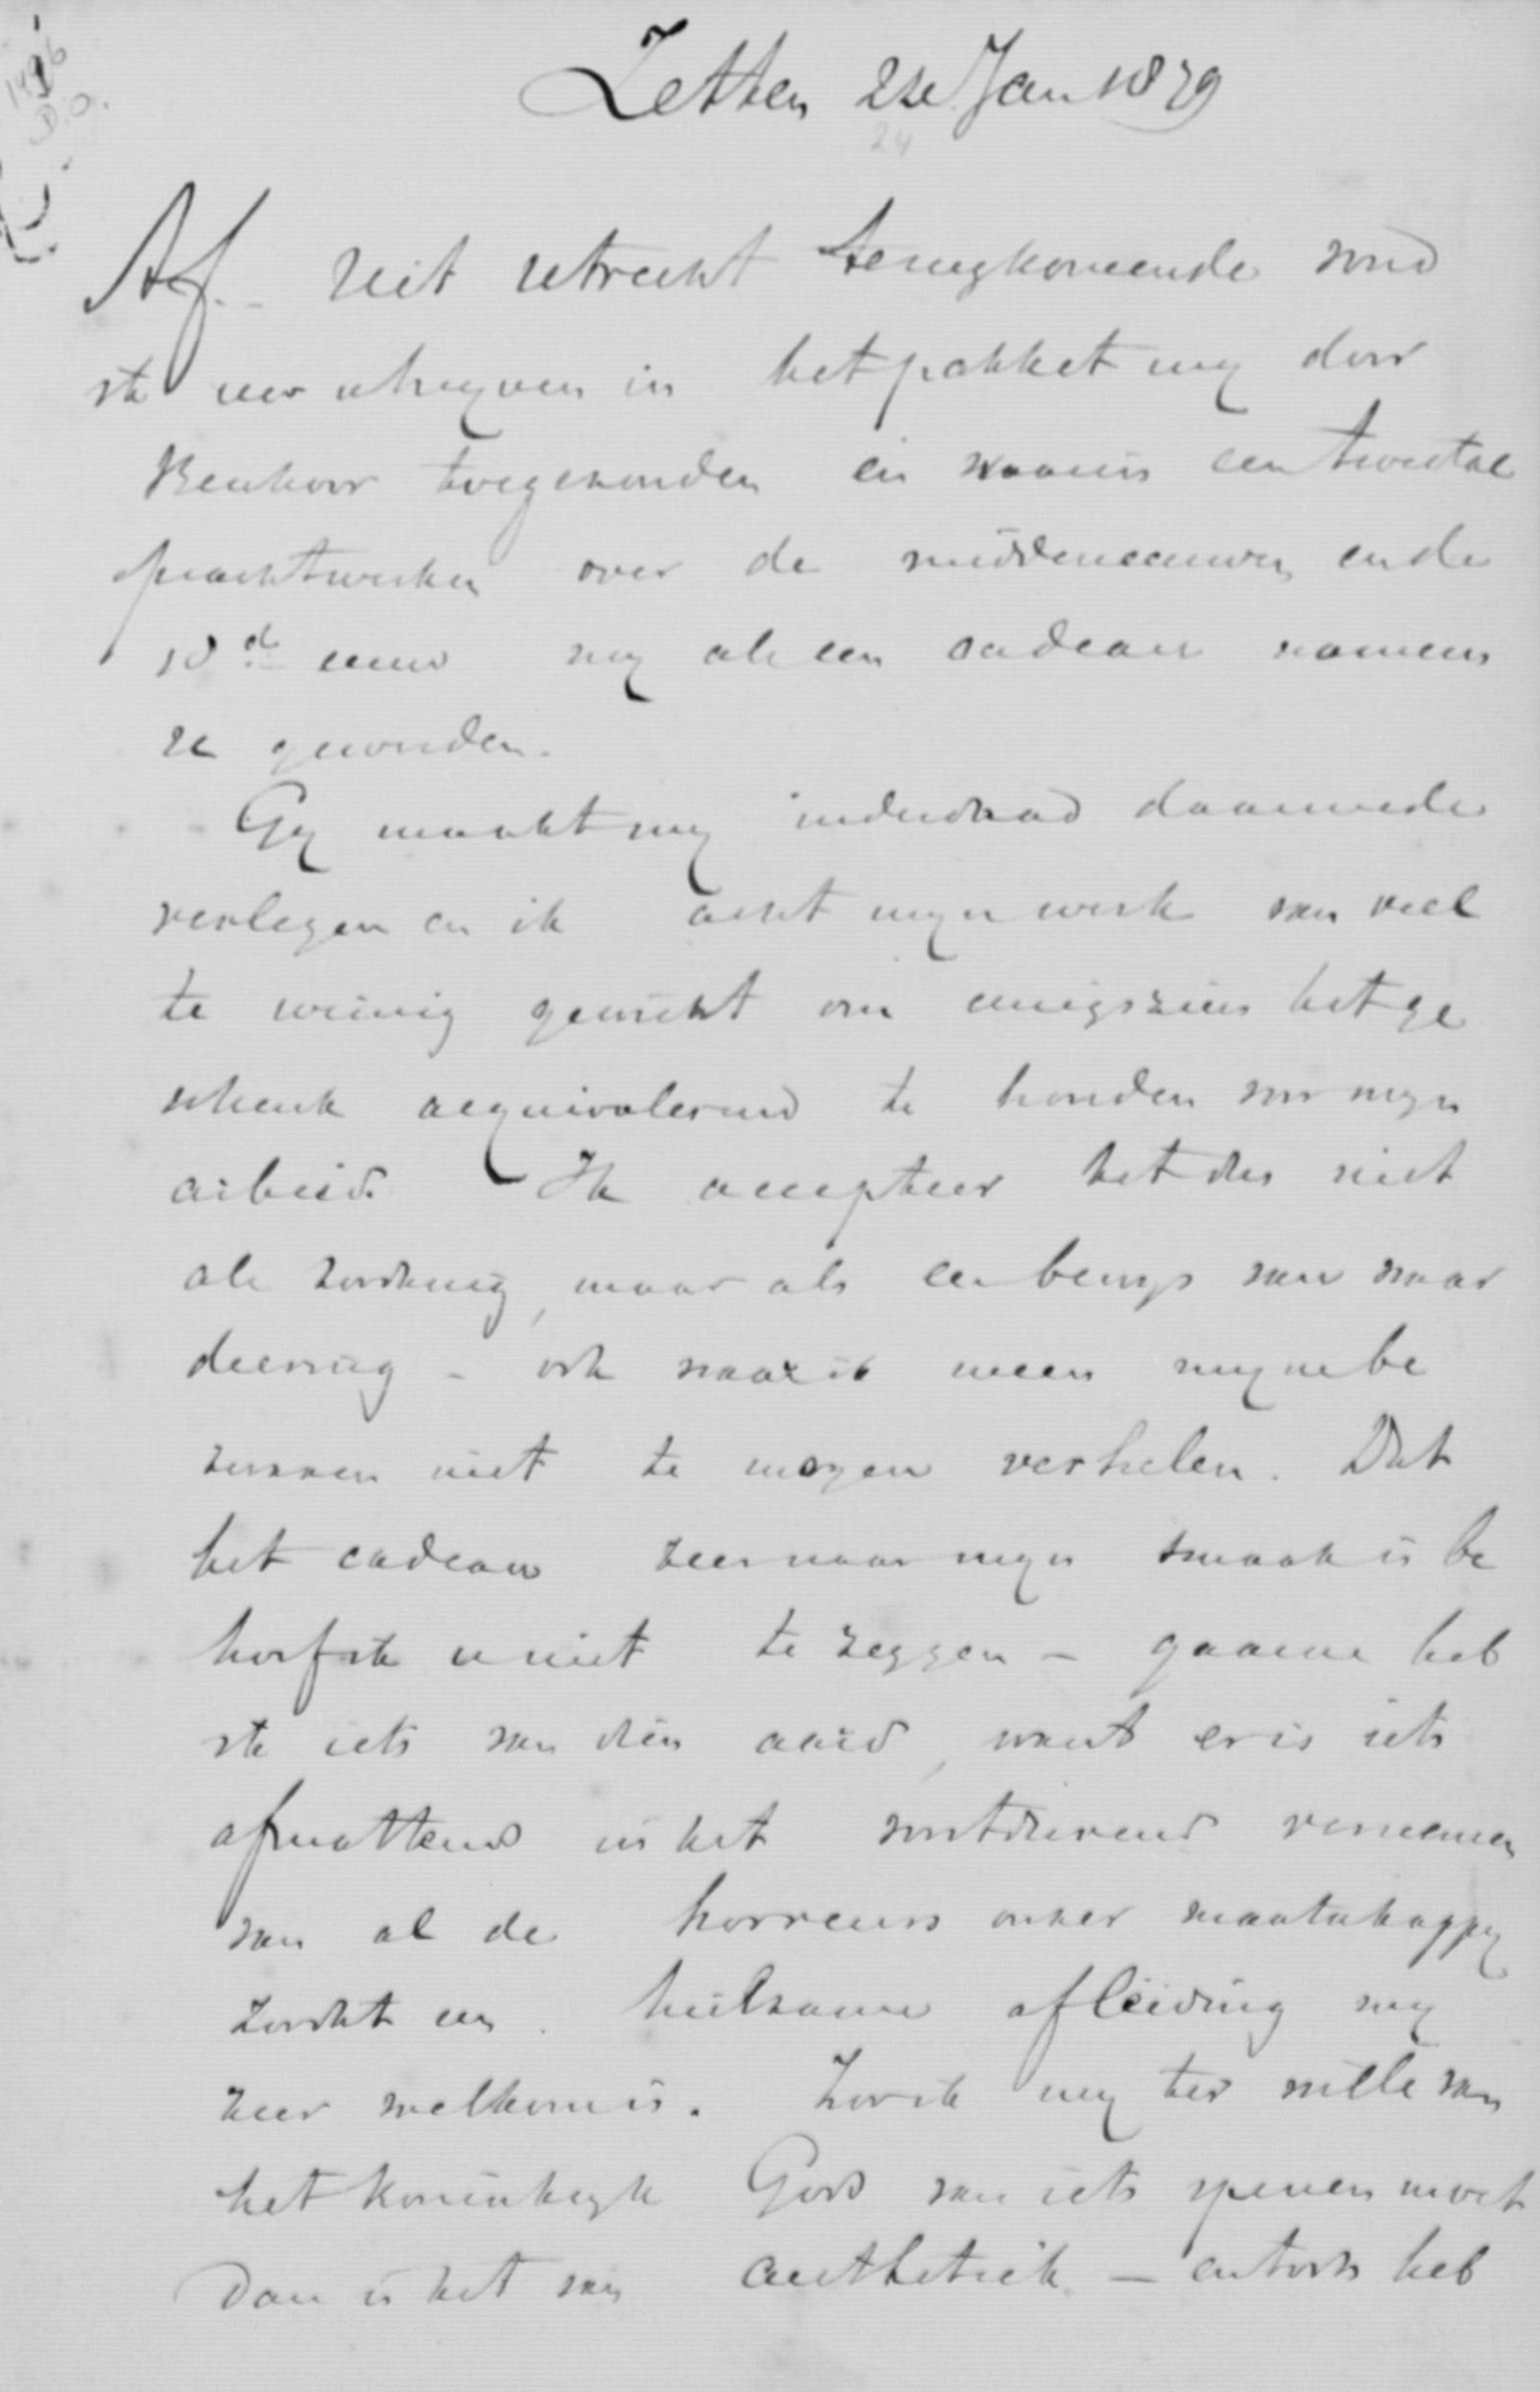 Zetten 22e Jan 1879
24
Af. Uit Utrecht terugkomende vond
ik uw schrijven in het pakket mij door
Beuhoor toegezonden en waarin een tweetal
prachtwerken over de middeneeuwen en de
18de eeuw mij als een cadeau namens
U geworden.
Gij maakt mij inderdaad daarmede
verlegen en ik acht mijn werk van veel
te weinig gewicht om eenigszins het ge
schenk aequivalerend te houden voor mijn
arbeid. Ik accepteer het dus niet
als zoodanig, maar als een bewijs van waar
deering - ook waar ik meen mijne be
zwaren niet te mogen verhelen. Dat
het cadeau zeer naar mijn smaak is be
hoef ik u niet te zeggen - gaarne heb
ik iets van dien aard, want er is iets
afmattend in het voortdurend vernemen
van al de horreurs onzer maatschappij
zoodat een heilzame afleiding mij
zeer welkom is. Zoo ik mij ter wille van
het Koninkrijk Gods van iets spenen moet
dan is het van aesthetiek - en toch heb